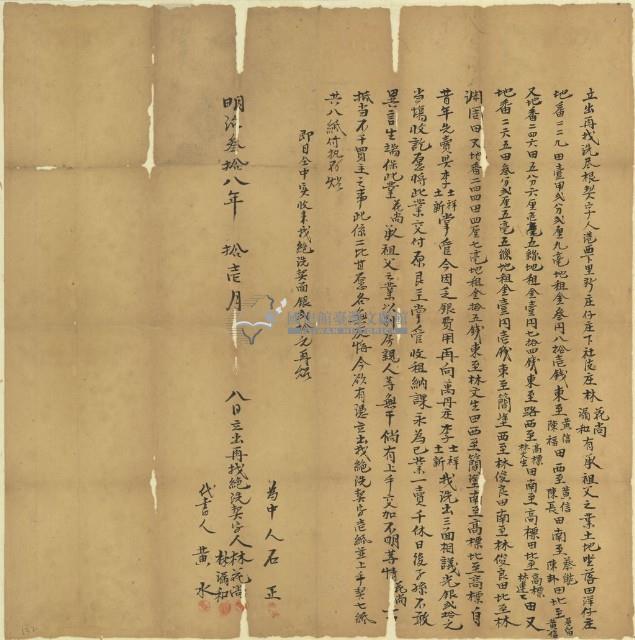 立出再找洗尽根契字人港西下里新庄仔庄下社庄林花尚滿和有承祖父之業土地坐落田洋仔庄
地番二二九田壹甲貳分貳厘九毫地租金叁円八拾壹錢東至黃信陳福田西至黃信陳長田南至蔡陳卦田北至黃信
又地番二四六田五分六厘地租金壹円七拾四錢東至路西至高標林文生田南至高標田北至高標田又
地番二六五田叁分貳厘五毫五絲地租金壹円壹錢東至簡堂西至林俊良田南至林俊良田北至林
田又地番二四四田四厘七毫地租金拾五錢東至林文生田西至簡堂南至高標北至高標自
昔年先賣與李士祥士新掌管今因乏銀費用再向萬丹庄李士祥士新找洗出三面相議光銀貳拾元
當塲收訖愿將此業交付原良主掌管收租納課永為己業一賣千休日後子孫不敢
異言生端保此業花尚承祖父之業以外房親人等無干倘有上手交加不明等情花尚一
抵当不干買主之事此係二比甘愿各無反悔今欲有憑立出找絕洗契字壱紙並上手契七紙
共八紙付执存炤
即日仝中實收來找絕洗契面銀貳拾元再炤
為中人石正
明治叁拾八年拾壱月八日立出再找絕洗契字人林花尚林滿和
代書人黃水
國史館臺灣文獻館
TAIWAN HISTORICA